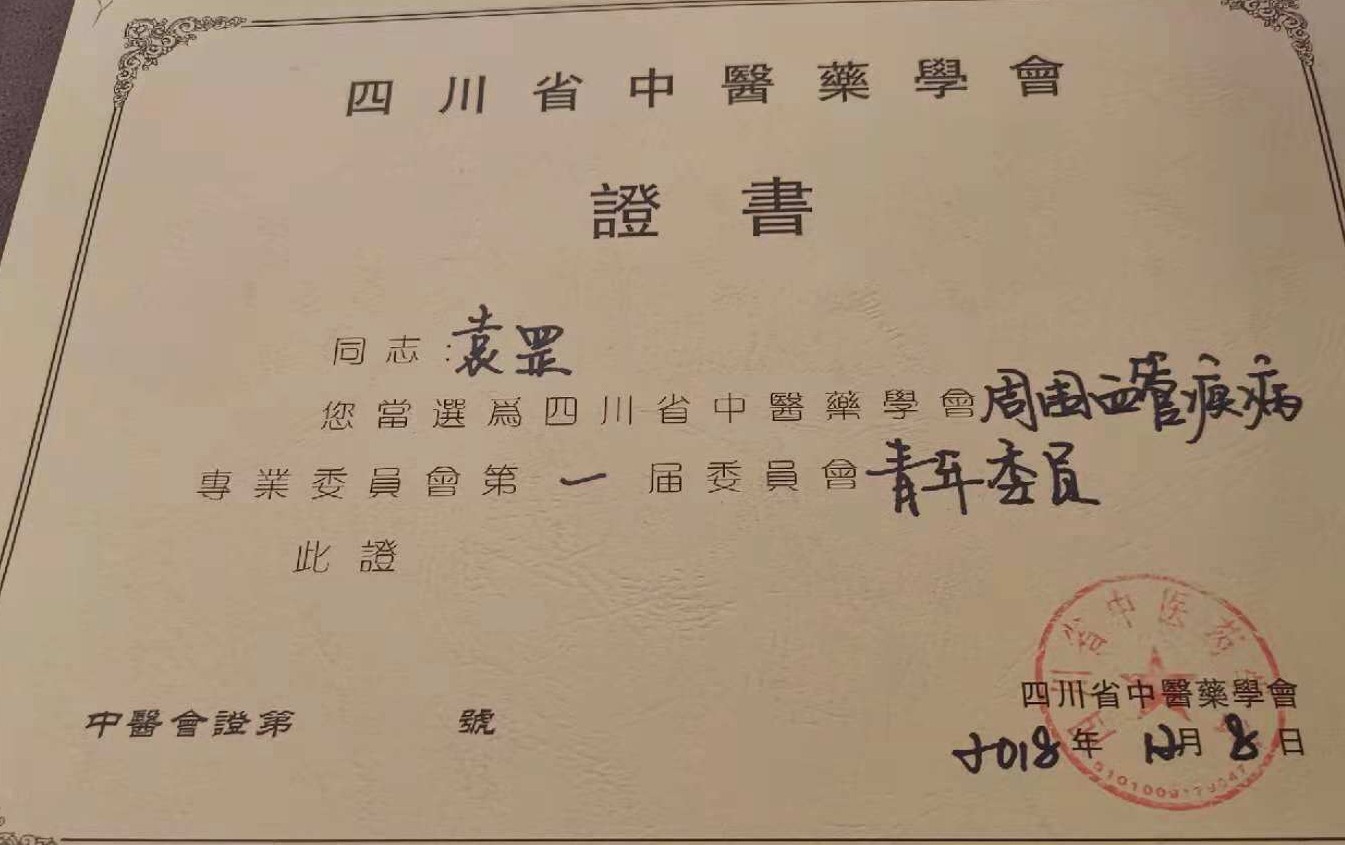 四川省中醫藥學會
證書
同志：袁罡
您當選爲四川省中醫藥學會周围血管疾病
專業委員會第一届委員會青年委員
此證
中醫會證第 號
四川省中醫藥學會
2018年12月8日